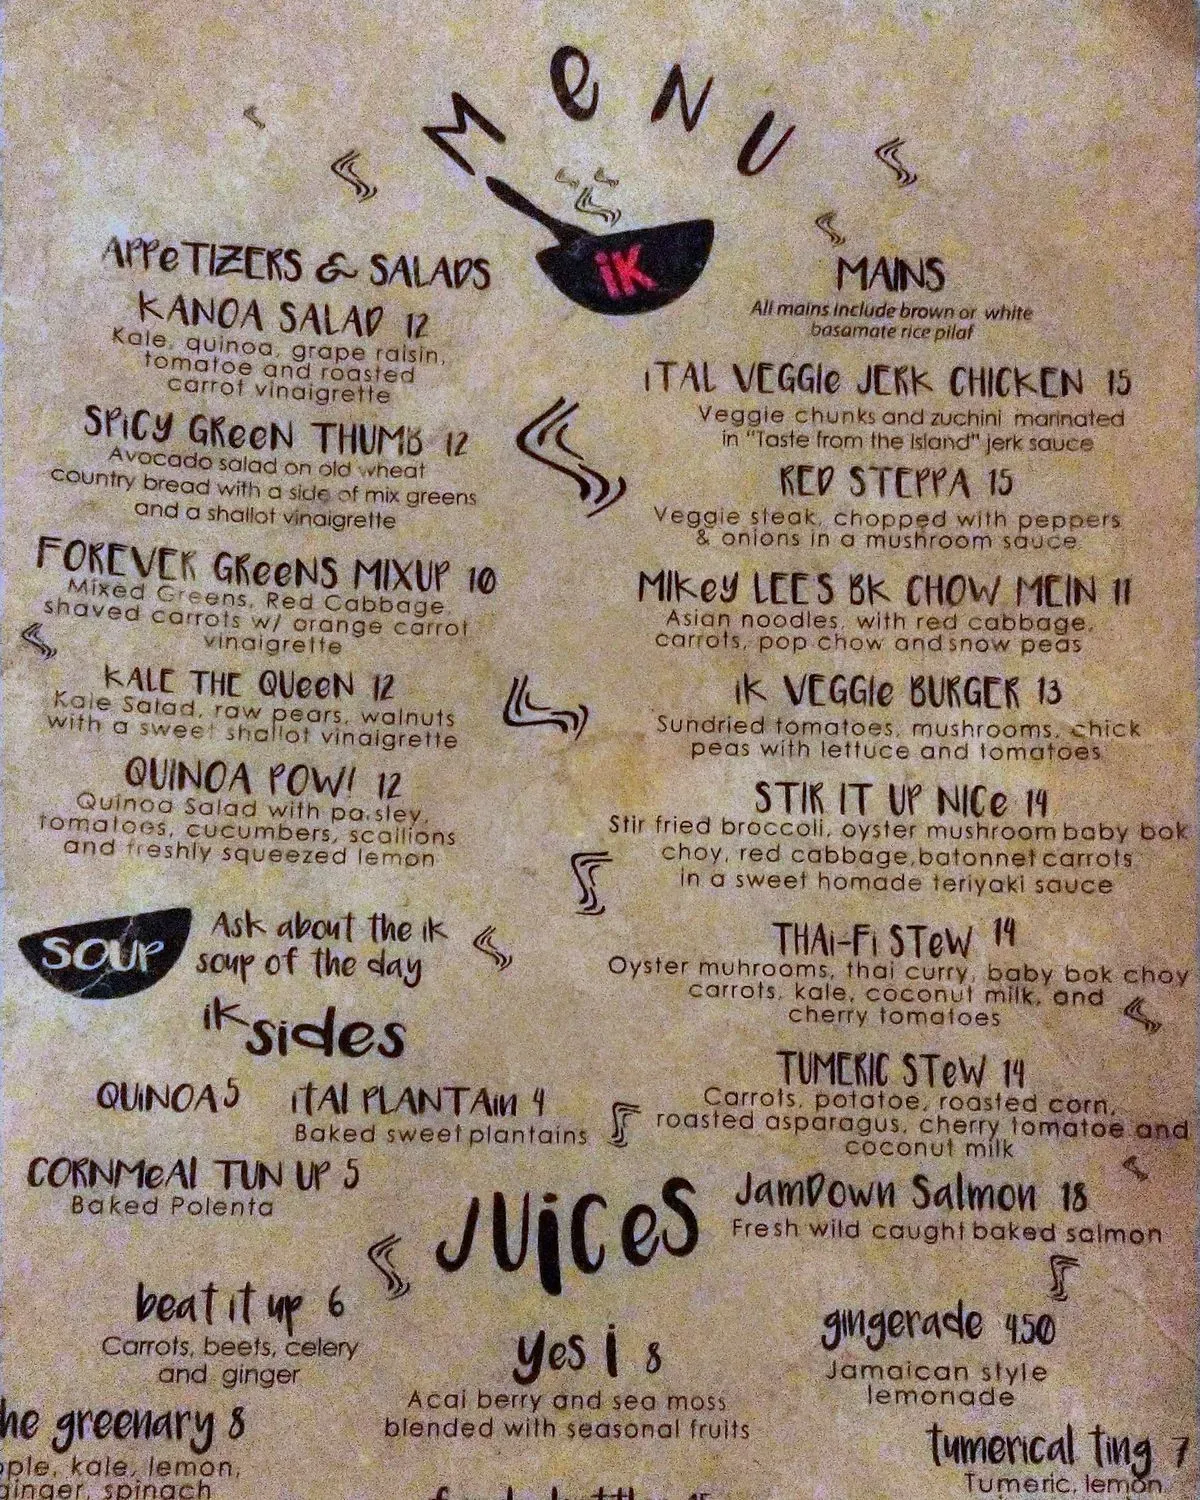 MeNU
iK
APPeTIZERS & SALADS
KANOA SALAD 12
Kale, quinoa, grape raisin,
tomatoe and roasted
carrot vinaigrette
SPiCY GReeN THUMB 12
Avocado salad on old wheat
country bread with a side of mix greens
and a shallot vinaigrette
FOREVER GReeNS MIXUP 10
Mixed Greens, Red Cabbage,
shaved carrots w/ orange carrot
vinaigrette
KALE THE QUeeN 12
Kale Salad, raw pears, walnuts
with a sweet shallot vinaigrette
QUINOA POW! 12
Quinoa Salad with paisley,
tomatoes, cucumbers, scallions
and freshly squeezed lemon
SOUP
Ask about the iK
soup of the day
iK sides
QUiNOA 5
iTAl PLANTAin 4
Baked sweet plantains
CORNMeAl TUN UP 5
Baked Polenta
MAINS
All mains include brown or white
basamate rice pilaf
iTAL VEGGIe JERK CHICKEN 15
Veggie chunks and zuchini marinated
in "Taste from the Island" jerk sauce
RED STEPPA 15
Veggie steak, chopped with peppers
& onions in a mushroom sauce
MIKeY LEES BK CHOW MEIN 11
Asian noodles, with red cabbage,
carrots, pop chow and snow peas
iK VEGGIe BURGER 13
Sundried tomatoes, mushrooms, chick
peas with lettuce and tomatoes
STIR IT UP NICe 14
Stir fried broccoli, oyster mushroom baby bok
choy, red cabbage, batonnet carrots
in a sweet homade teriyaki sauce
THAi-Fi STeW 14
Oyster muhrooms, thai curry, baby bok choy
carrots, kale, coconut milk, and
cherry tomatoes
TUMERIC STeW 14
Carrots, potatoe, roasted corn,
roasted asparagus, cherry tomatoe and
coconut milk
JamDown Salmon 18
Fresh wild caught baked salmon
JUiCeS
beat it up 6
Carrots, beets, celery
and ginger
he greenary 8
ple, kale, lemon,
ginger, spinach
yes i 8
Acai berry and sea moss
blended with seasonal fruits
gingerade 4.50
Jamaican style
lemonade
tumerical ting 7
Tumeric, lemon